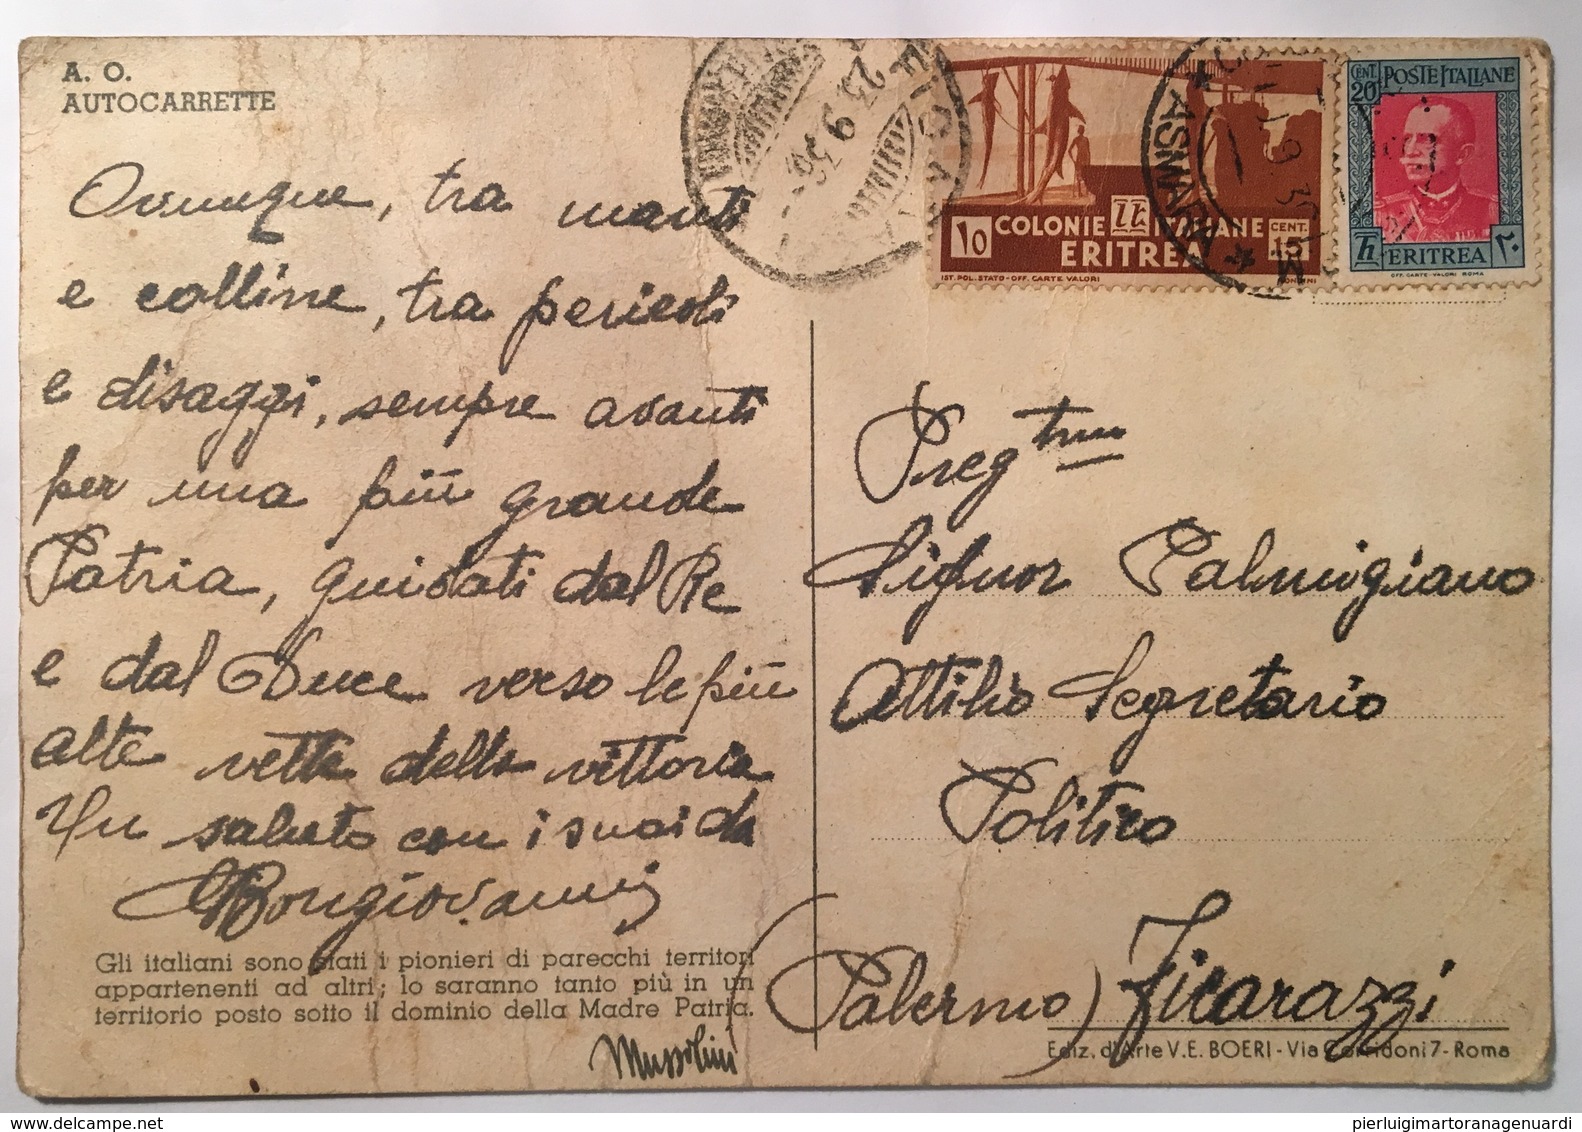 A. O.
AUTOCARRETTE
Ovunque, tra monti
e colline, tra pericoli
e disaggi, sempre avanti
per una più grande
Patria, guidati dal Re
e dal Duce verso le più
alte vette della vittoria
Un saluto con i suoi da
Bongiovanni
Gli italiani sono stati i pionieri di parecchi territori
appartenenti ad altri; lo saranno tanto più in un
territorio posto sotto il dominio della Madre Patria.
Mussolini
23 9 36
COLONIE ITALIANE
10 CENT. 15
ERITREA
IST. POL. STATO - OFF. CARTE VALORI
ASMARA
CENT. 20 POSTE ITALIANE
ERITREA ٢٠
OFF. CARTE-VALORI ROMA
Preg
Signor Palmigiano
Attilio Segretario
Politico
(Palermo) Ficarazzi
Ediz. d'Arte V. E. BOERI - Via Corridoni 7 - Roma
pierluigimartoranagenuardi